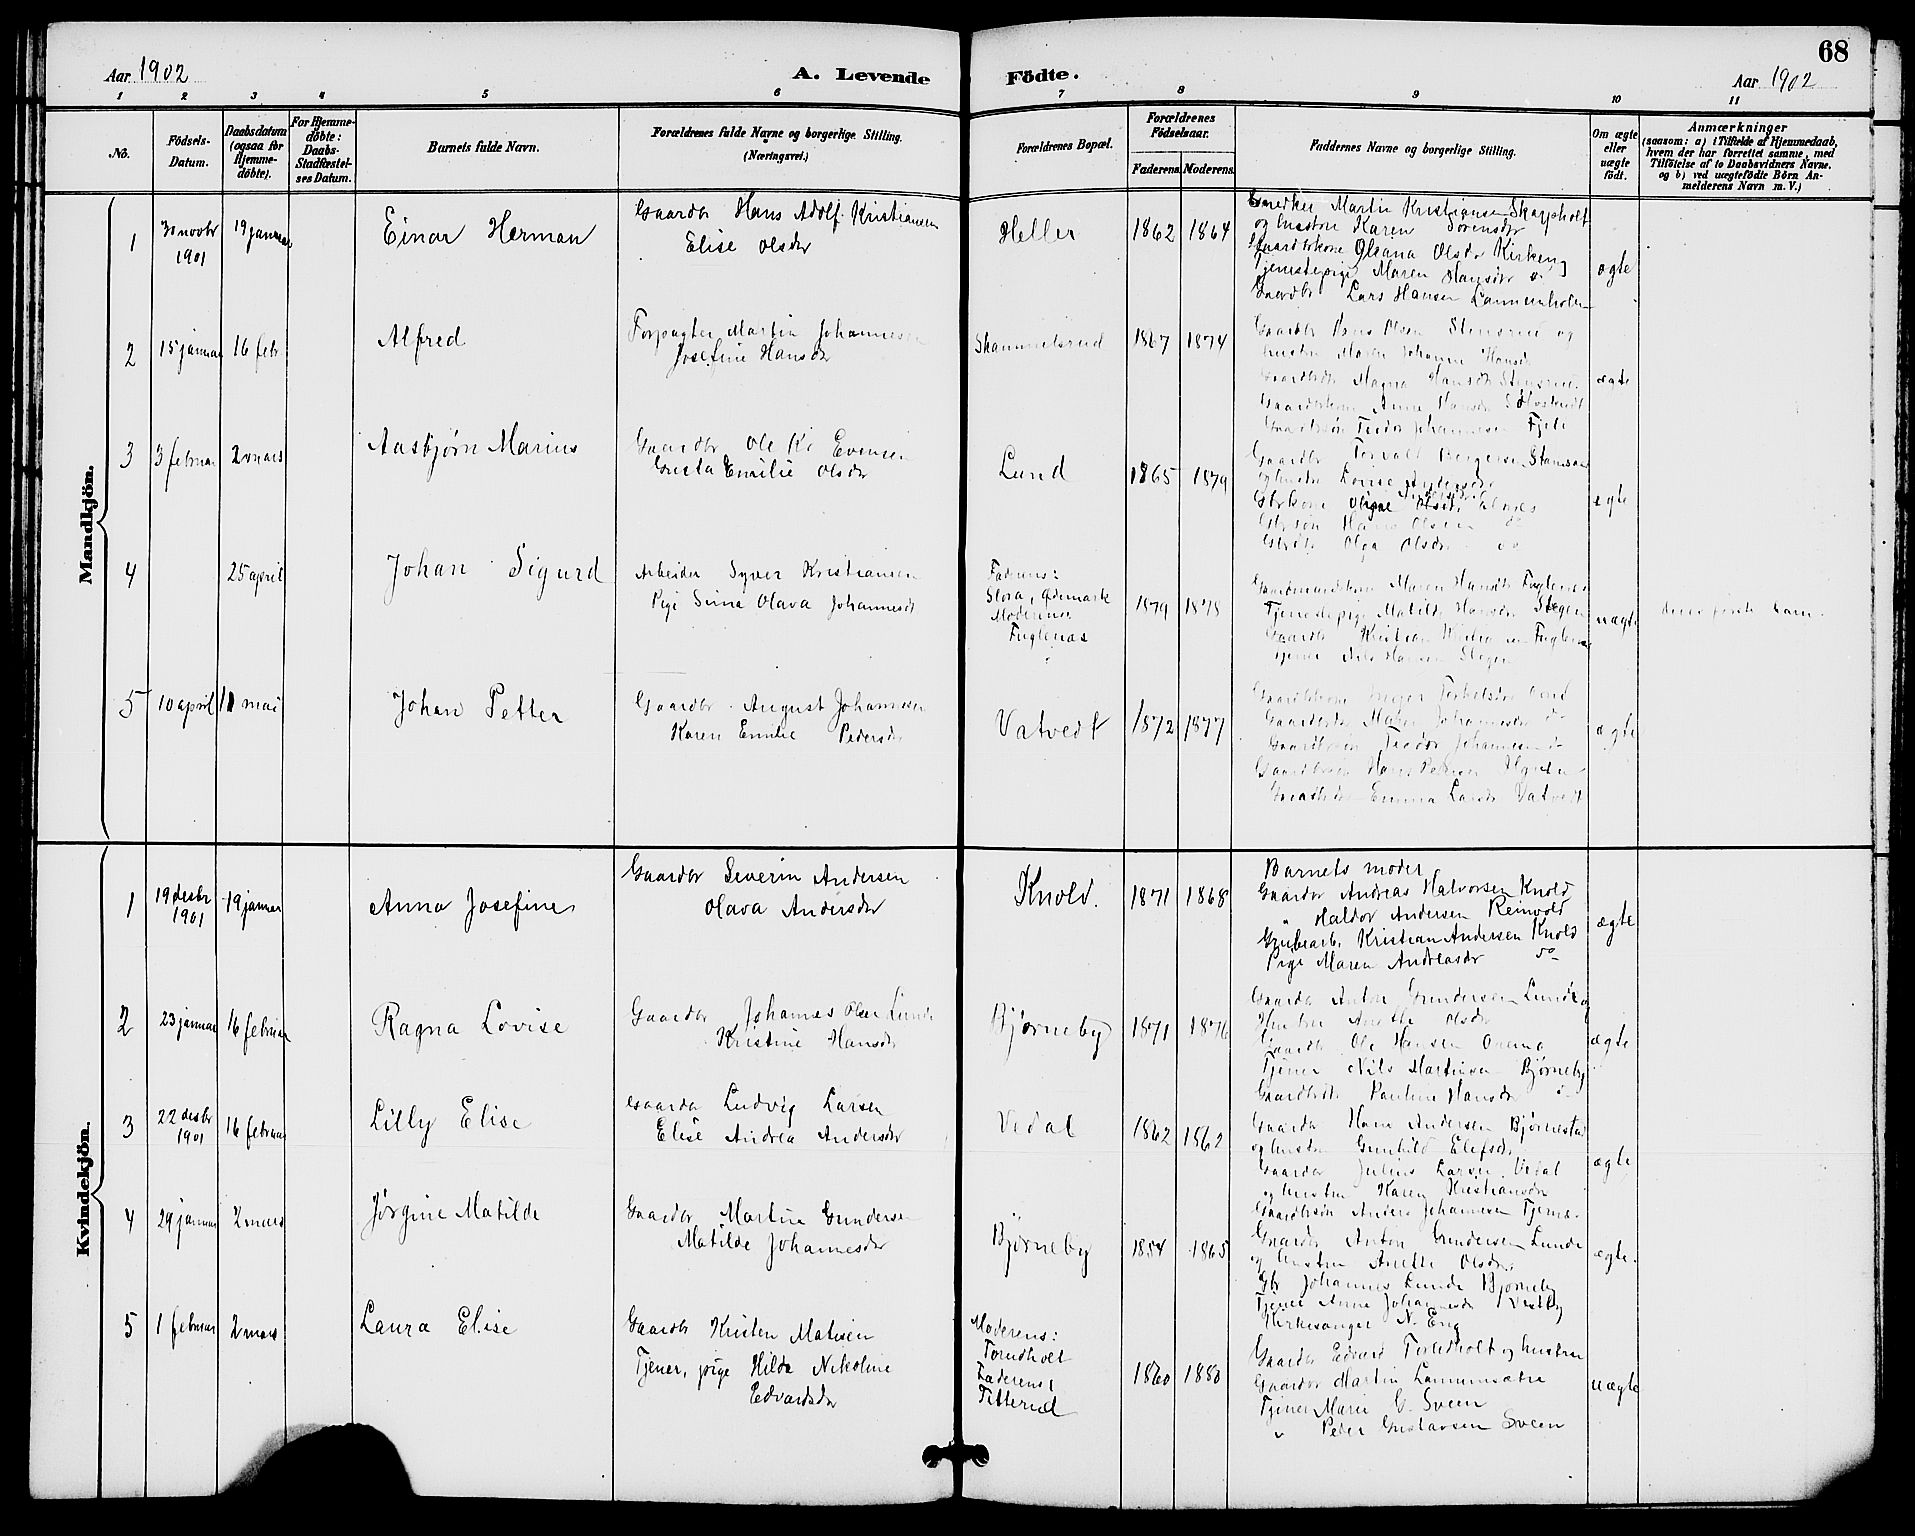 68
Aar 1902
A. Levende Födte.
Aar 1902
1 2 3 4 5 6 7 8 9 10 11
No.
Födsels-Datum.
Daabsdatum (ogsaa for Hjemme-döbte).
For Hjemme-döbte: Daabs-Stadfæstel-ses Datum.
Barnets fulde Navn.
Forældrenes fulde Navne og borgerlige Stilling. (Næringsvei.)
Forældrenes Bopæl.
Forældrenes Födselsaar.
Faderens Moderens
Faddernes Navne og borgerlige Stilling.
Om ægte eller uægte födt.
Anmærkninger
(saasom: a) i Tilfælde af Hjemmedaab,
hvem der har forrettet samme, med
Tilföielse af to Daabsvidners Navne.
og b) ved uægtefödte Börn An-
melderens Navn m. V.)
Mandkjön.
1
30 novbr 1901
19 januar
Einar Herman
Gaardbr Hans Adolf Kristiansen
Elise Olsdr
Heller
1862 1864
Smedker Martin Kristiansen Skappholt
og hustru Karen Sorensdr
Gaardbrkone Oleana Olsdr Kirkeng
Tjenestepige Maren Hansdr
Gaardbr Lars Hansen
ægte
2
15 januar
16 febr
Alfred
Forpagter Martin Johannesen
Josefine Hansdr
Skammelsrud
1867 1874
Gaardbr Hans Olsen Stensrud og
hustru Maren Johanne Hansdr
Magna Hansdr Stensrud
Anne Hansdr
Teodor Johannesen Fjeld
ægte
3
3 februar
2 mars
Aasbjørn Marius
Gaardbr Ole Kr Evensen
Gusta Emilie Olsdr
Lund
1865 1879
Gaardbr Torvald Bergersen
og hustru Lovise Andersdr
Olsdr
Hans Olsen do
Olga Olsdr do
ægte
4
25 april
Johan Sigurd
Arbeider Syver Kristiansen
Pige Sina Olava Johannesdr
Faderens:
Slora, Ødemark
Moderens:
Fuglenas
1879 1878
Maren Hansdr Fuglenes
Tjenestepige Matilde Hansdr Slegen
Gaardbr Kristian Fuglenes
Tjener Nils Hansen Slegen
uægte
deres første barn.
5
10 april
11 mai
Johan Petter
Gaardbr August Johannesen
Karen Emilie Pedersdr
Vatvedt
1872 1877
Inger Torkelsdr
Johannesdr do
Teodor Johannesen do
Hans Petersen
Emma Larsdr Vatvedt
ægte
Kvindekjön.
1
19 desbr 1901
19 januar
Anna Josefine
Gaardbr Severin Andersen
Olava Andersdr
Knold.
1871 1868
Barnets moder
Gaardbr Andreas Halvorsen Knold
" Haldor Andersen Reinvold
Grubearb. Kristian Andersen Knold
Pige Maren Andreasdr do
ægte
2
23 januar
16 februar
Ragna Lovise
Gaardbr Johannes Olsen Lunde
Kristine Hansdr
Bjørneby
1871 1876
Gaardbr Anton Gundersen Lunde og
Hustru Anethe Olsdr
Gaardbr Ole Hansen
Tjener Nils Martinsen Bjørneby
Pauline Hansdr do
ægte
3
22 desbr 1901
16 februar
Lilly Elise
Gaardbr Ludvig Larsen
Elise Andrea Andersdr
Vedal
1862 1862
Gaardbr Hans Andersen Bjørnestad
og hustru Gunhild Elefsdr
Gaardbr Julius Larsen Vedal
og hustru Karen Kristiansdr
Gaardbrsøn Anders Johannesen
ægte
4
29 januar
2 mars
Jørgine Matilde
Gaardbr Martin Gundersen
Matilde Johannesdr
Bjørneby
1854 1865
Gaardbr Anton Gundersen Lunde
og hustru Anethe Olsdr
Gbr Johannes Lunde Bjørneby
Tjener Anne Johannesdr Vestby
Kirkesanger N. Eng
ægte.
5
1 februar
2 mars
Laura Elise
Gaardbr Kristen Matisen
Tjener, pige Hilda Nikoline
Edvardsdr
Moderens:
Torudholt
Faderens:
Titterud
1860 1880
Gaardbr Edvard Torudholt og hustru
Gaardbr Martin Lannumsætre
Tjener Marie G. Sveen
" Peder Gustavsen Sveen
uægte